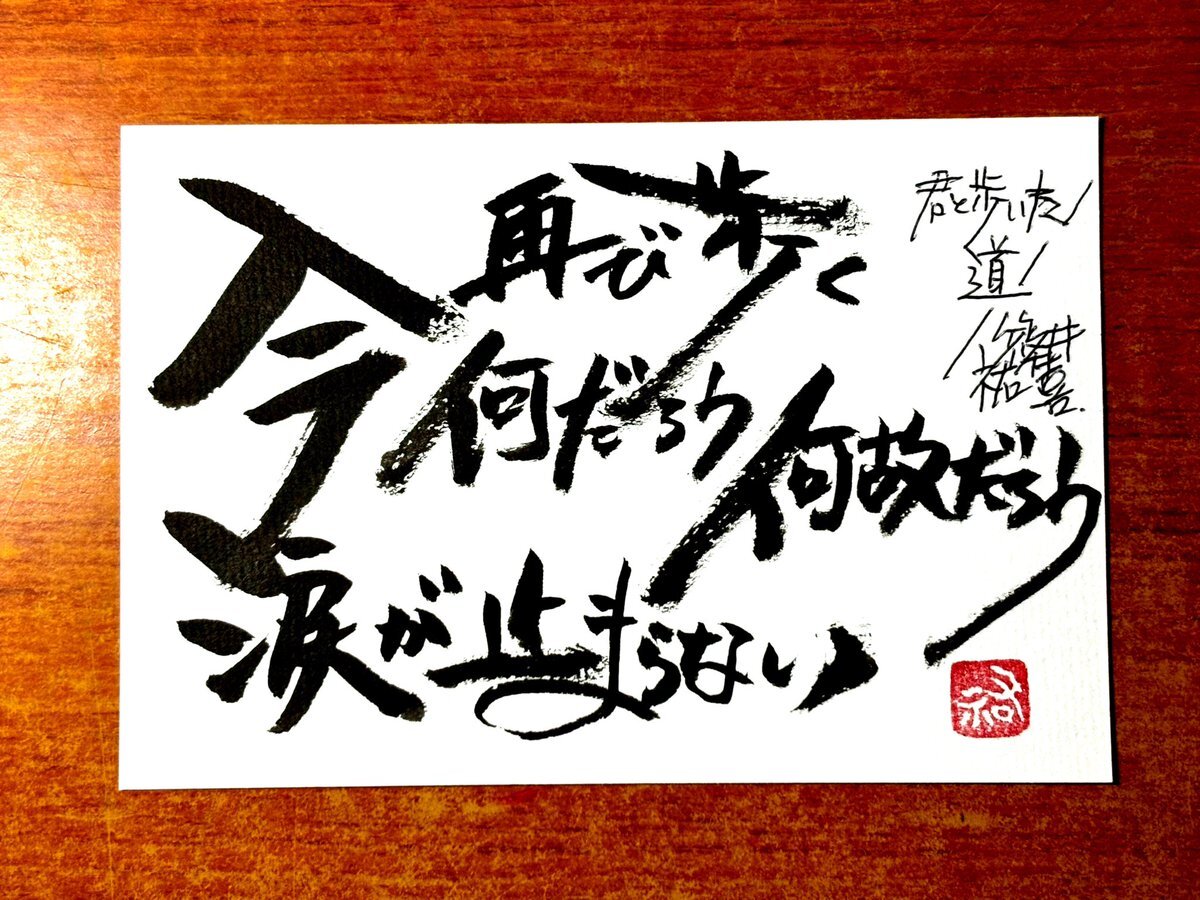 今再び歩く
何だろう
何故だろう
涙が止まらない
君と歩いた
道
祐